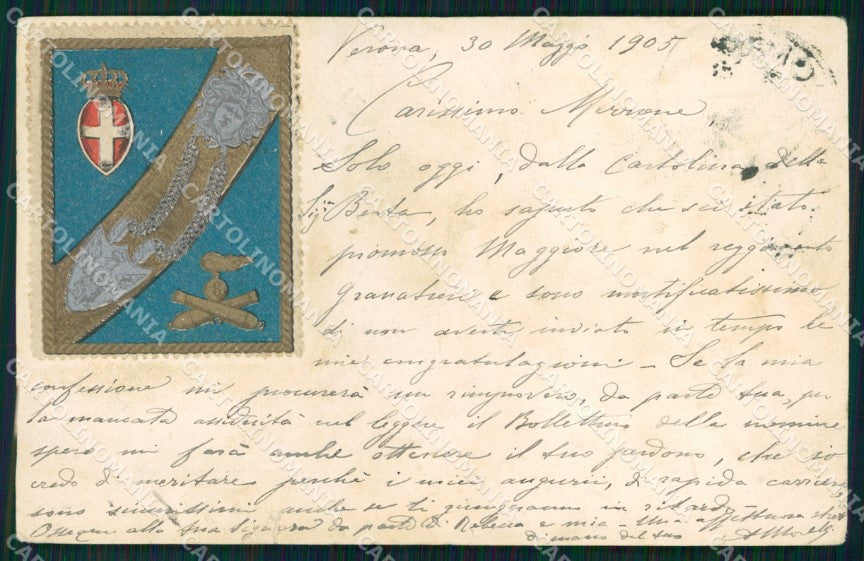 Verona, 30 Maggio 1905
Carissimo Merrone,
Solo oggi, dalla cartolina della
Sig.ra Berta, ho saputo che sei stato
promosso Maggiore nel reggimento
Granatieri e sono mortificatissimo
di non averti inviato in tempo le
mie congratulazioni - Se la mia
confessione mi procurerà un rimprovero, da parte tua, per
la mancata assiduità nel leggere il Bollettino delle nomine
spero mi farà anche ottenere il tuo perdono, che io
credo di meritare perchè i miei augurii, di rapida carriera,
sono sincerissimi anche se ti giungeranno in ritardo
Ossequi alla tua Signora da parte di Rebecca e mia - Una affettuosa
di mano dal tuo
CARTOLINOMANIA